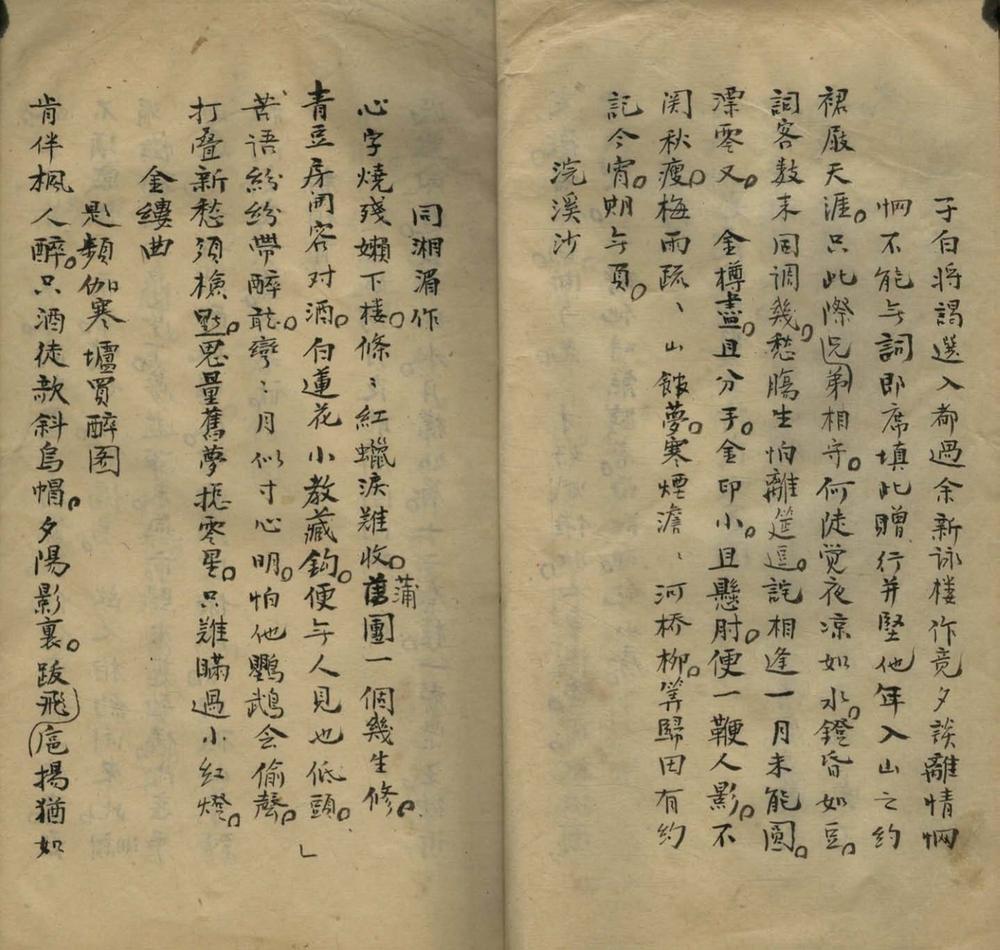 子白將謁選入都過余新詠楼作竟夕談離情惘
惘不能与詞即席填此贈行并堅他年入山之約
裙屐天涯只此際兄弟相守何陡觉夜凉如水鐙昏如豆
詞客数来同調幾愁腸生怕離筵逗詫相逢一月未能圓
漂零又　金樽盡且分手金印小且懸肘便一鞭人影不
関秋瘦梅雨疏、山館夢寒煙澹、河桥柳筭歸田有約
記今宵朙与頁
浣溪沙
同湘湄作
心字燒殘嬾下楼條、紅蠟淚難收蒲團一個幾生修
青豆房閒容对酒白蓮花小教藏鈎便与人見也低頭
苦語紛紛帶醉聼彎、月似寸心明怕他鸚鵡会偷聲
打叠新愁須檢點思量舊夢揔零星只難瞞過小紅燈
金縷曲
題頻伽寒壚買醉图
肯伴楓人醉只酒徒款斜烏帽夕陽影裏跋飛扈揚猶如